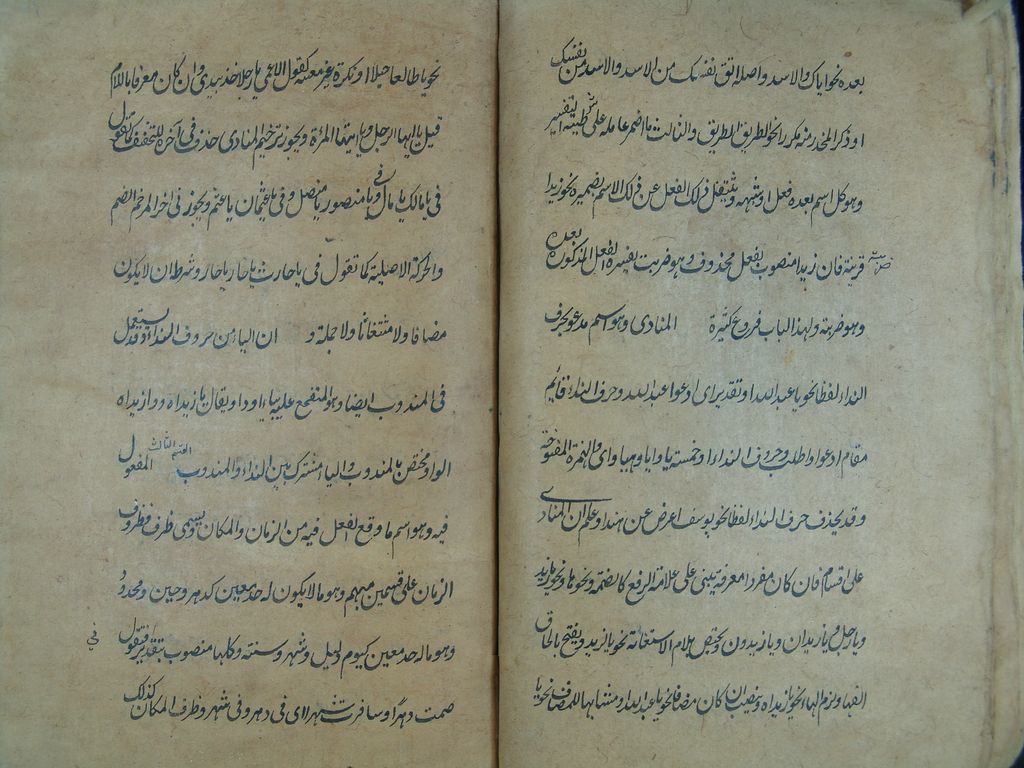 بعده نحو اياك والاسد واصله اتق نفسك من الاسد والاسد من نفسك
او ذكر المحذر منه مكررا نحو الطريق الطريق والثالث ما اضمر عامله على شريطة التفسير
وهو كل اسم بعده فعل او شبهه ويشتغل ذلك الفعل عن ذلك الاسم بضميره نحو زيدا
ضربته قرينة فان زيدا منصوب بفعل محذوف وهو ضربت يفسره الفعل المذكور بعده
وهو ضربته ولهذا الباب فروع كثيرة المنادى وهو اسم مدعو بحرف
النداء لفظا نحو يا عبد الله او تقديرا اى ادعوا عبد الله وحرف النداء قائم
مقام ادعوا واطلب وحروف النداء خمسة يا وايا وهيا واى والهمزة المفتوحة
وقد يحذف حرف النداء لفظا نحو يوسف اعرض عن هذا واعلم ان المنادى
على اقسام فان كان مفردا معرفة يبنى على علامة الرفع كالضمة ونحوها نحو يا زيد
ويا رجل ويا زيدان ويا زيدون ويخفض بلام الاستغاثة نحو يا لزيد ويفتح بالحاق
الفها ولزم الهاء نحو يا زيداه وينصب ان كان مضافا نحو يا عبد الله او مشابها للمضاف نحو يا
نحو يا طالعا جبلا او نكرة غير معينة كقول الاعمى يا رجلا خذ بيدى وان كان معرفا باللام
قيل يا ايها الرجل ويا ايتها المرأة ويجوز ترخيم المنادى حذف فى آخره للتخفيف كما تقول
فى يا مالك يا مال وفى يا منصور يا منص وفى يا عثمان يا عثم ويجوز فى آخر المرخم الضم
والحركة الاصلية كما تقول فى يا حارث يا حار يا حار وشرط ان لا يكون
مضافا ولا مستغاثا ولا جملة و ان اليا من حروف النداء وقد يستعمل
فى المندوب ايضا وهو المتفجع عليه بيا او وا ويقال يا زيداه ووا زيداه
الواو مختص بالمندوب واليا مشترك بين النداء والمندوب القسم الثالث المفعول
فيه وهو اسم ما وقع الفعل فيه من الزمان والمكان ويسمى ظرفا وظروف
الزمان على قسمين مبهم وهو ما لا يكون له حد معين كدهر وحين ومحدود
وهو ما له حد معين كيوم وليل وشهر وسنة وكلها منصوب بتقدير فى تقول
صمت دهرا وسافرت شهرا اى فى دهر وفى شهر وظرف المكان كذلك